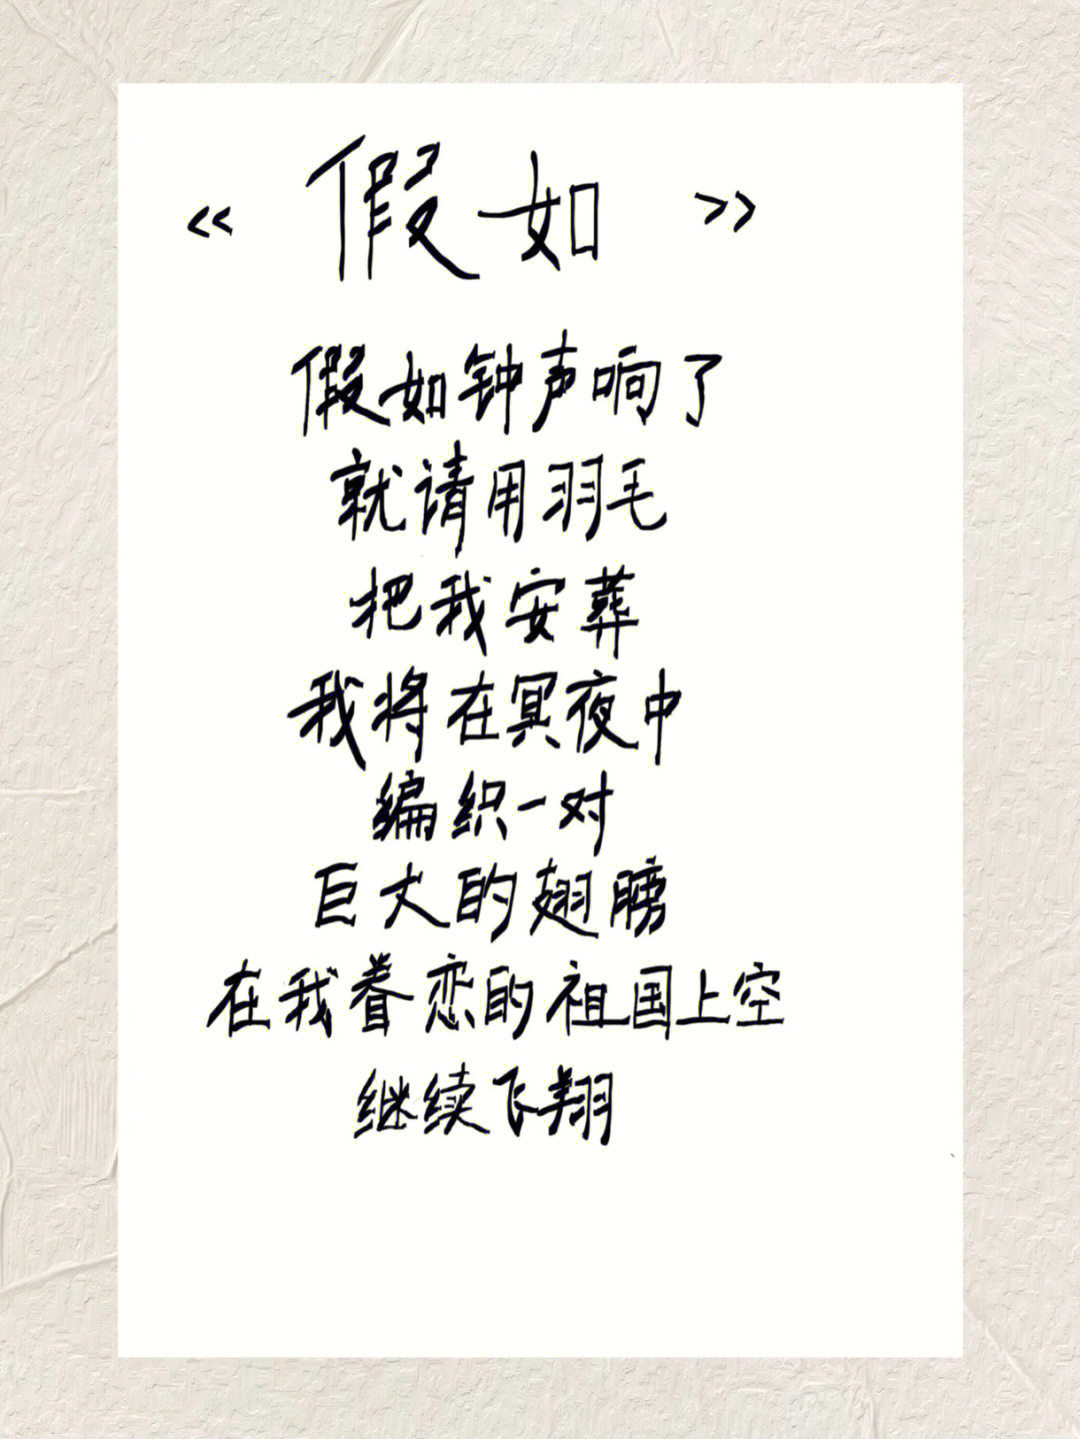 《 假如 》
假如钟声响了
就请用羽毛
把我安葬
我将在冥夜中
编织一对
巨大的翅膀
在我眷恋的祖国上空
继续飞翔